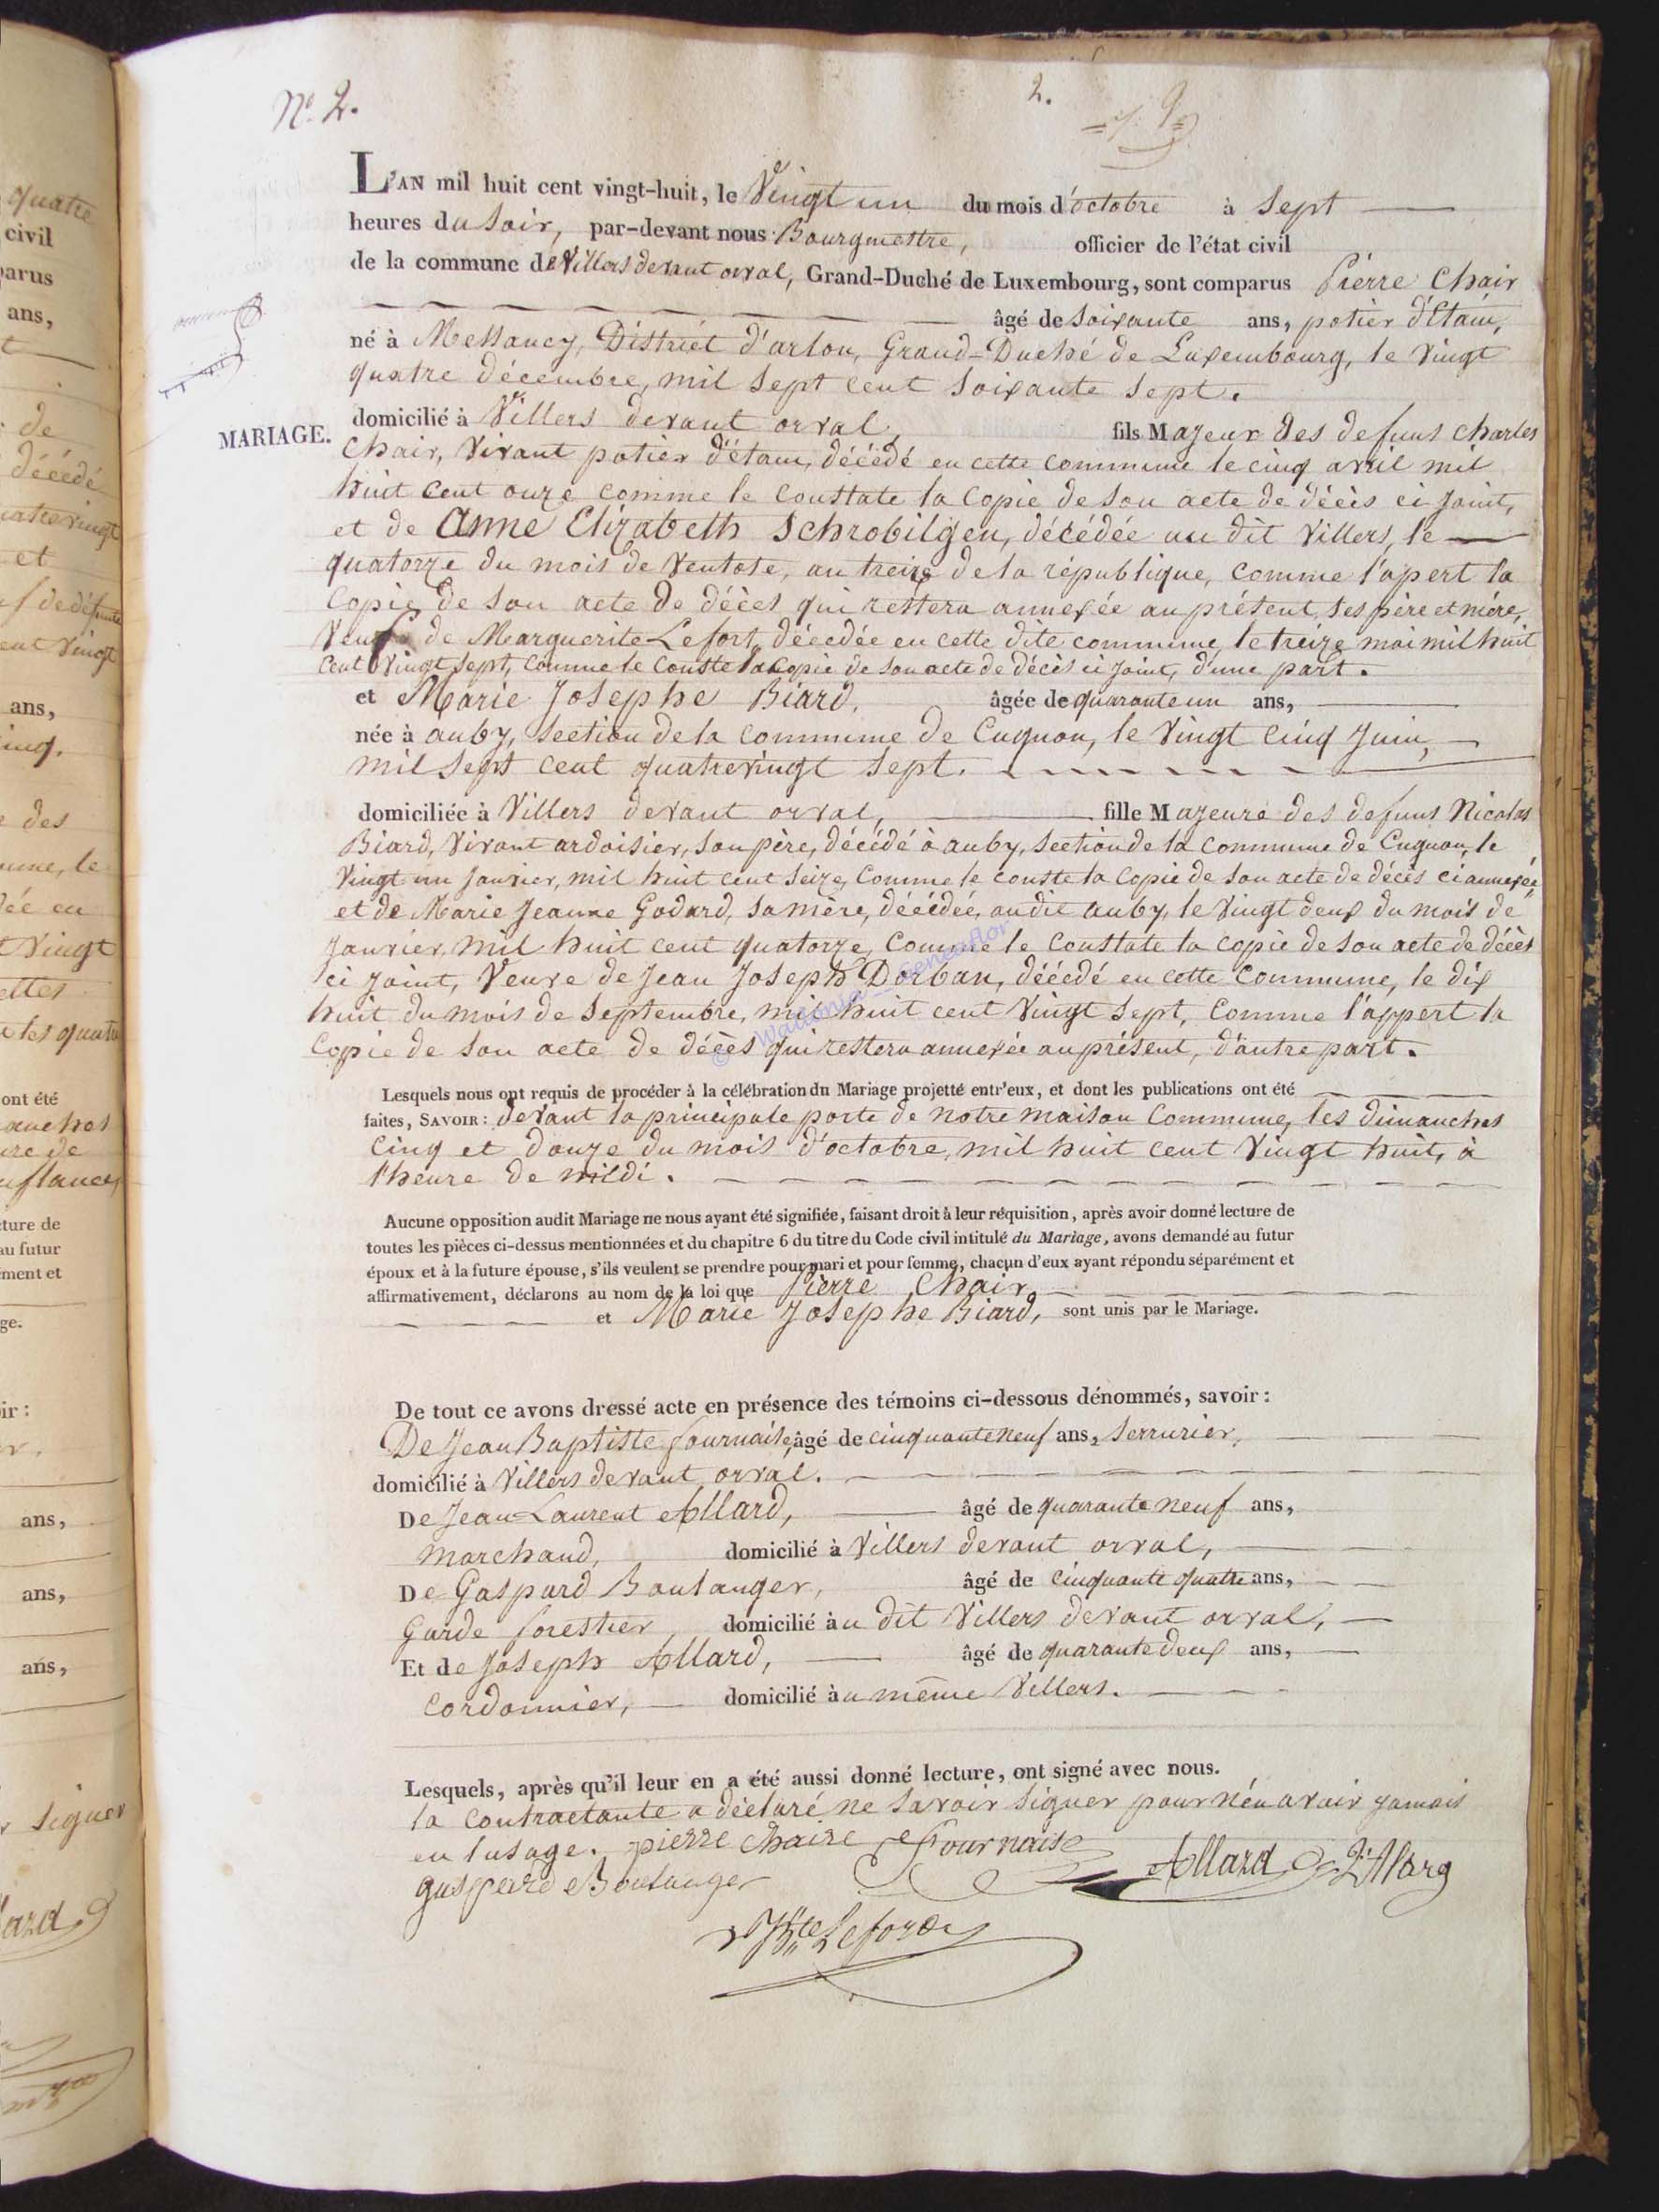 No. 2.
2.
L'AN mil huit cent vingt-huit, le Vingt un du mois d'octobre à sept
heures du soir, par-devant nous Bourgmestre, officier de l'état civil
de la commune de Villers devant orval, Grand-Duché de Luxembourg, sont comparus Pierre Chair
âgé de soixante ans, potier d'Etain,
né à Messancy, District d'arlon, Grand-Duché de Luxembourg, le vingt
quatre décembre, mil sept cent soixante sept.
MARIAGE.
domicilié à Villers devant orval, fils Majeur des defunts Charles
Chair, vivant potier d'étain, décédé en cette commune le cinq avril mil
huit cent onze comme le constate la Copie de son acte de décès ci joint,
et de Anne Elizabeth Schrobilgen, décédée au dit Villers, le
quatorze du mois de Ventose, an treize de la république, comme l'apert la
Copie de son acte de décès qui restera annexée au présent, ses père et mère,
Veuf de Marguerite Lefort, décedée en cette dite commune, le treize mai mil huit
cent vingt sept, comme le conste la copie de son acte de décès ci joint, d'une part.
et Marie Josephe Biard, âgée de quarante un ans,
née à auby, section de la commune de Cugnon, le vingt cinq Juin,
mil sept cent quatrevingt sept.
domiciliée à Villers devant orval, fille Majeure des defunts Nicolas
Biard, Vivant ardoisier, son père, décédé à auby, section de la commune de Cugnon, le
Vingt un Janvier, mil huit cent seize, Comme le conste la Copie de son acte de décès ci annexée
et de Marie Jeanne Godard, sa mère, décédée, au dit auby, le vingt deux du mois de
Janvier, mil huit cent quatorze, comme le constate la copie de son acte de décès
ci joint, Veuve de Jean Joseph Dorban, décédé en cette Commune, le dix
huit du mois de Septembre, mil huit cent vingt sept, Comme l'appert la
Copie de son acte de décès qui restera annexée au présent, d'autre part.
Lesquels nous ont requis de procéder à la célébration du Mariage projetté entr'eux, et dont les publications ont été
faites, SAVOIR: devant la principale porte de notre maison Commune, les dimanches
cinq et douze du mois d'octobre, mil huit cent vingt huit, à
l'heure de midi.
Aucune opposition audit Mariage ne nous ayant été signifiée, faisant droit à leur réquisition, après avoir donné lecture de
toutes les pièces ci-dessus mentionnées et du chapitre 6 du titre du Code civil intitulé du Mariage, avons demandé au futur
époux et à la future épouse, s'ils veulent se prendre pour mari et pour femme, chacun d'eux ayant répondu séparément et
affirmativement, déclarons au nom de la loi que Pierre Chair,
et Marie Josephe Biard, sont unis par le Mariage.
De tout ce avons dressé acte en présence des témoins ci-dessous dénommés, savoir:
De Jean Baptiste fournaise, âgé de cinquante neuf ans, serrurier,
domicilié à Villers devant orval.
De Jean-Laurent Allard, âgé de quarante neuf ans,
marchand, domicilié à Villers devant orval,
De Gaspard Boulanger, âgé de cinquante quatre ans,
Garde forestier, domicilié au dit Villers devant orval,
Et de Joseph Allard, âgé de quarante deux ans,
cordonnier, domicilié au même Villers.
Lesquels, après qu'il leur en a été aussi donné lecture, ont signé avec nous.
la contractante a déclaré ne savoir signer pour n'en avoir jamais
eu l'usage. pierre chaire Fournaise
Allard
gaspard Boulanger
Lefort